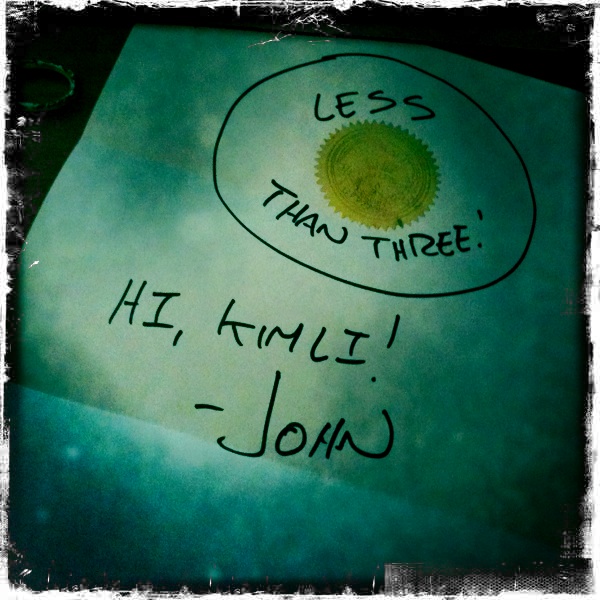 LESS
THAN THREE!
HI, KIMLI!
-JOHN